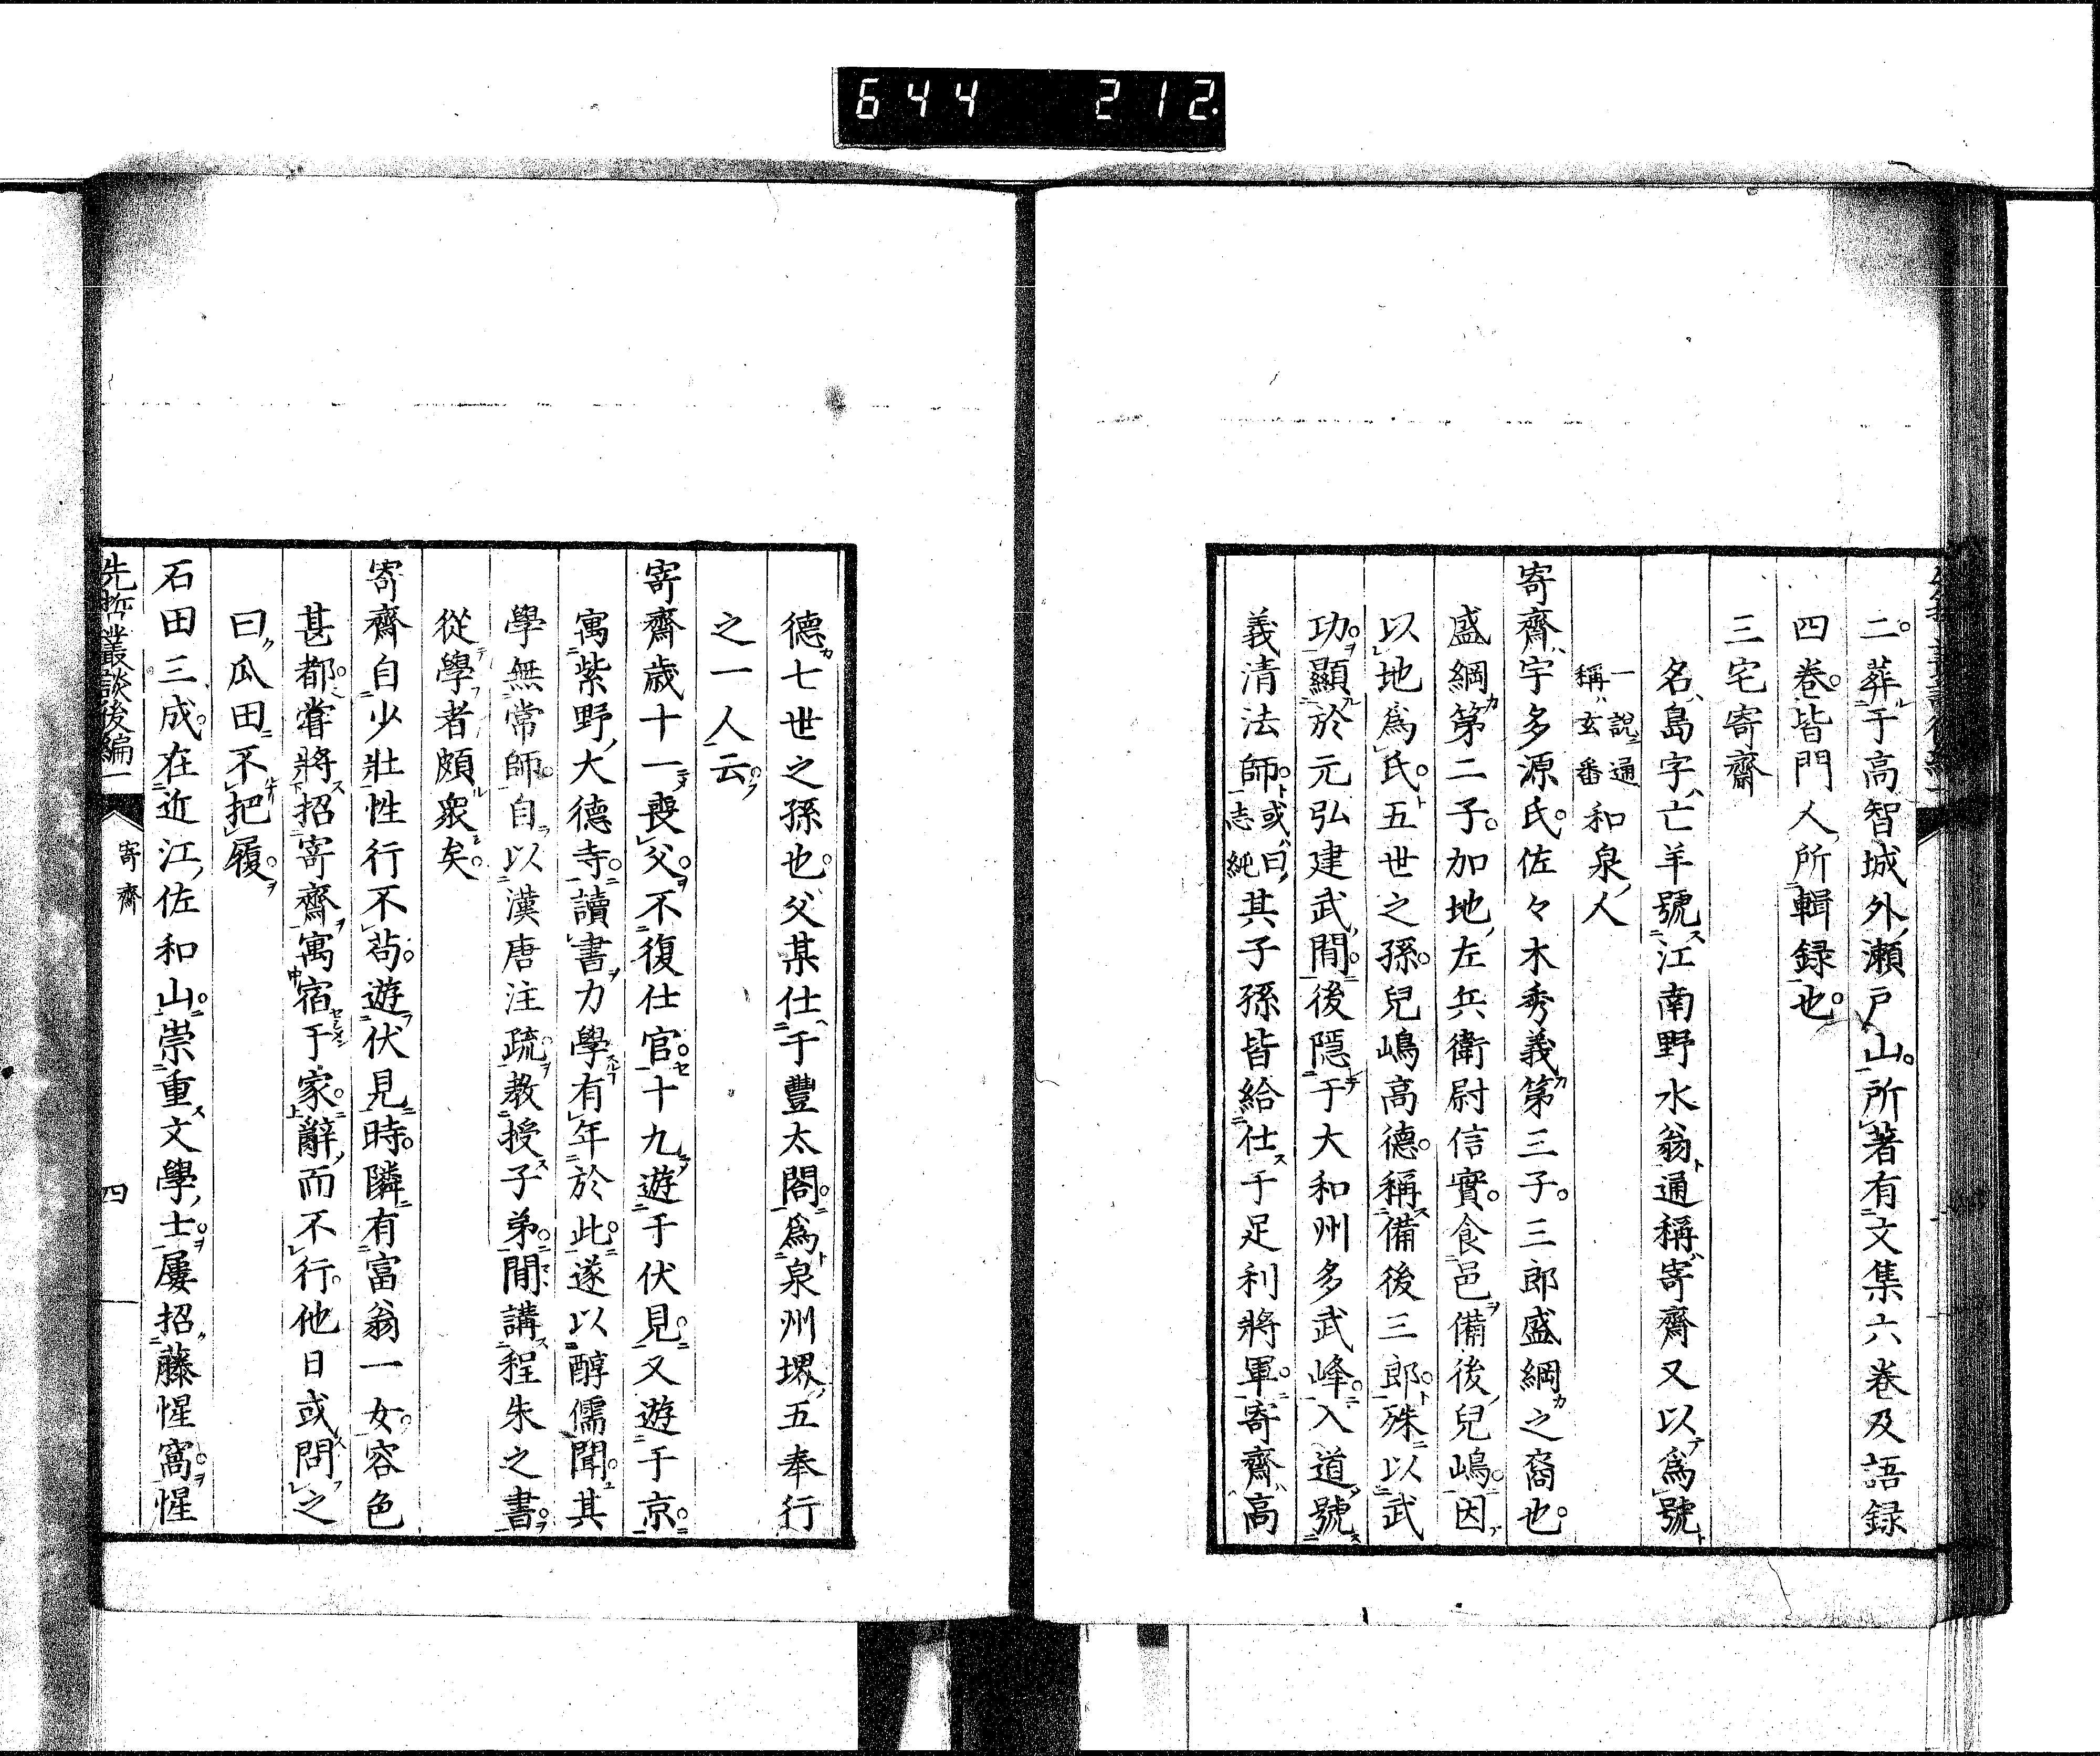 644 212.
二。葬于高智城外瀬戸山。所著有文集六卷及語録
四卷。皆門人所輯録也。
三宅寄齋
名島字亡羊號江南野水翁通稱寄齋又以爲號
一說通稱玄番和泉人
寄齋宇多源氏。佐々木秀義第三子。三郎盛綱之裔也。
盛綱第二子。加地左兵衛尉信實。食邑備後兒嶋。因
以地爲氏。五世之孫。兒嶋高德。稱備後三郎。殊以武
功。顯於元弘建武間。後隱于大和州多武峰。入道號
義清法師。或曰志純其子孫皆給仕于足利將軍。寄齋高
德七世之孫也。父某仕于豐太閤。爲泉州堺五奉行
之一人云。
寄齋歲十一喪父。不復仕官。十九遊于伏見。又遊于京。
寓紫野大德寺。讀書力學有年於此。遂以醇儒聞。其
學無常師。自以漢唐注疏。教授子弟。間講程朱之書。
從學者頗衆矣。
寄齋自少壯性行不苟。遊伏見時。隣有富翁一女。容色
甚都。嘗將招寄齋寓宿于家。辭而不行。他日或問之
曰瓜田不把履。
石田三成。在近江佐和山。崇重文學士。屢招藤惺窩。惺
先哲叢談後編一
寄齋
四